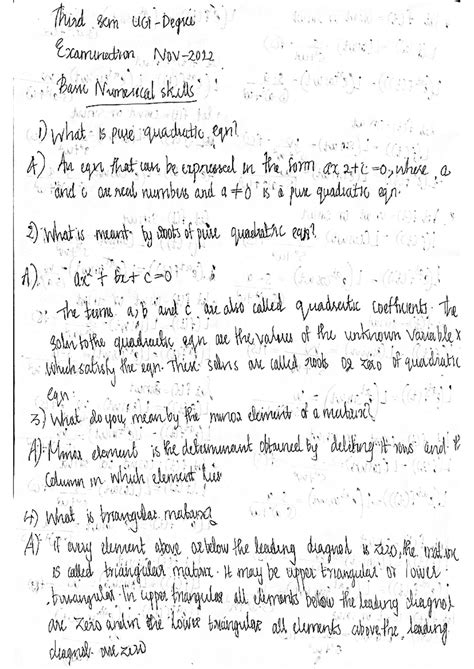 Third sem UG-Degree
Examination Nov-2022
Basic Numerical skills
1) What is pure quadratic eqn?
A) An eqn that can be expressed in the form ax2+c=0, where, a
and c are real numbers and a ≠ 0 is a pure quadratic eqn.
2) What is meant by roots of pure quadratic eqn?
A). ax² + bx + c = 0
The terms a, b and c are also called quadratic coefficients. the
soln to the quadratic eqn are the values of the unknown variable x
which satisfy the eqn. These solns are called roots or zero of quadratic
eqn
3) What do you mean by the minor element of a matrix?
A). Minor element is the determinant obtained by deleting it rows and
column in which element lies
4) What is triangular matrix?
A) if every element above or below the leading diagnol is zero, the matrix
is called triangular matrix. it may be upper triangular or lower
triangular. In upper triangular all elements below the leading diagnol
are zero and in the lower triangular all elements above the leading
diagnol are zero